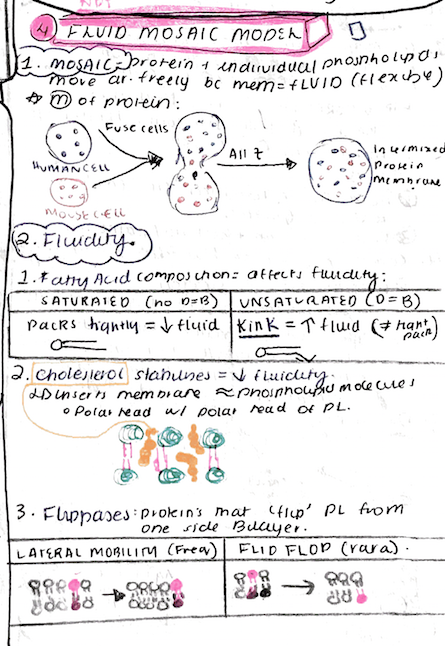 ④ FLUID MOSAIC MODEL
1. MOSAIC= protein + individual phospholipids
move ar. freely bc mem = FLUID (flexible)
☆ ⓜ of protein:
Fuse cells
All t
HUMAN CELL
MOUSE CELL
Intermixed
Protein
membrane
2. Fluidity.
1. Fatty Acid composition= affects fluidity:
SATURATED (no D=B)
UNSATURATED (D=B)
packs tightly = ↓ fluid
Kink = ↑ fluid (≠ tight
pack)
2. Cholesterol stabilises = ↓ fluidity.
↳ inserts membrane ≈ phospholipid molecules
° Polar head w/ polar head of PL.
3. Flippases: protein's that 'flip' PL from
one side Bilayer.
LATERAL MOBILITY (Freq)
FLIP FLOP (rara).